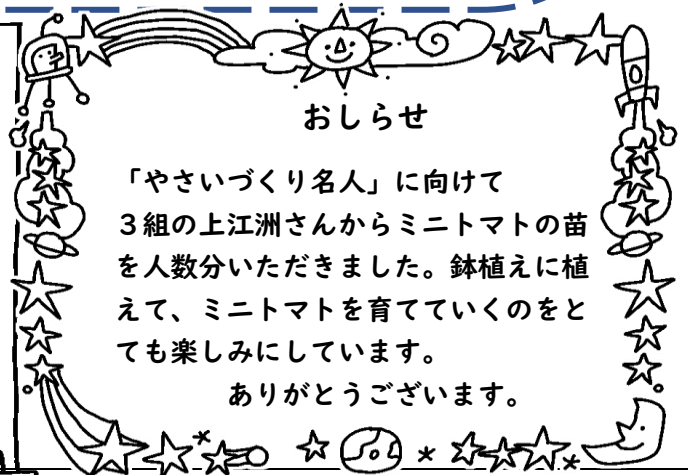 おしらせ
「やさいづくり名人」に向けて
３組の上江洲さんからミニトマトの苗
を人数分いただきました。鉢植えに植
えて、ミニトマトを育てていくのをと
ても楽しみにしています。
ありがとうございます。